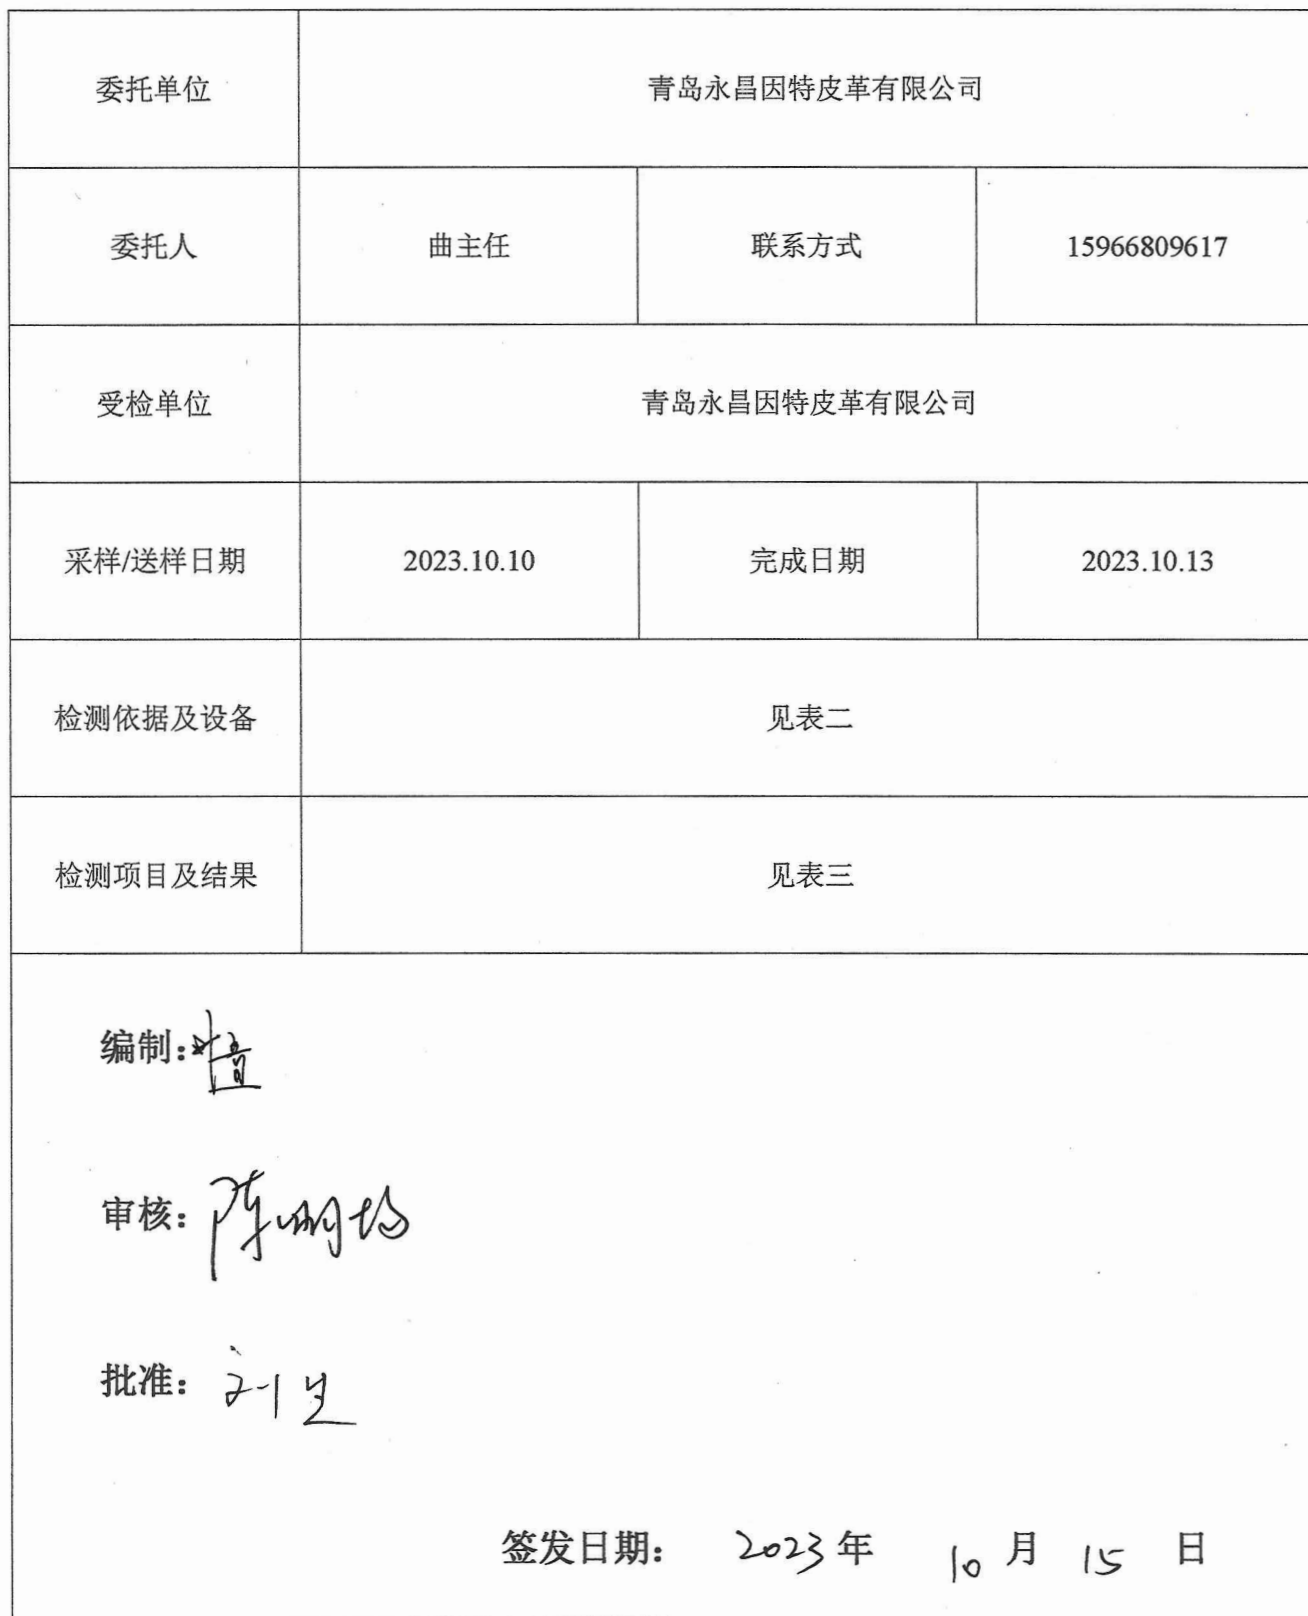 委托单位 青岛永昌因特皮革有限公司
委托人 曲主任 联系方式 15966809617
受检单位 青岛永昌因特皮革有限公司
采样/送样日期 2023.10.10 完成日期 2023.10.13
检测依据及设备 见表二
检测项目及结果 见表三
编制：
审核：陈
批准：刘
签发日期： 2023年 10月 15日